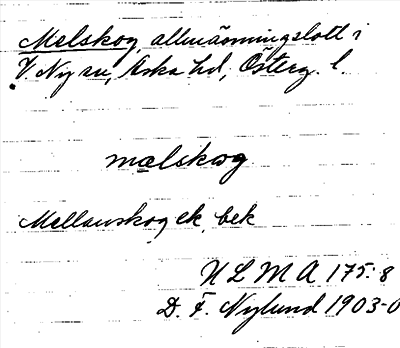 Melskog, allmänningslott i
V. Ny sn, Aska hd, Österg. l.
mælskog
Mellanskog ek. bek
ULMA 175:8
D. F. Nylund 1903-0